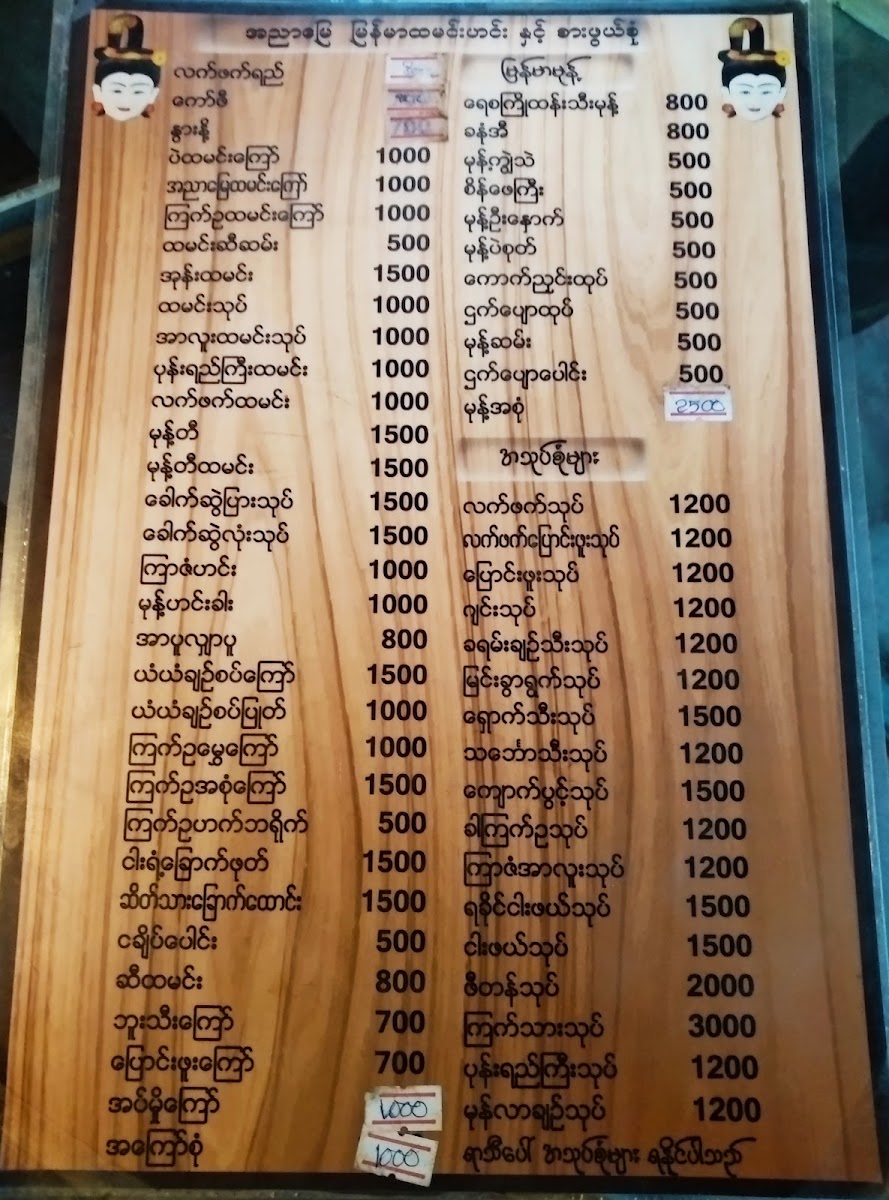 အညာမြေ မြန်မာထမင်းဟင်း နှင့် စားဖွယ်စုံ
လက်ဖက်ရည်
ကော်ဖီ
နွားနို့
ပဲထမင်းကြော် 1000
အညာမြေထမင်းကြော် 1000
ကြက်ဥထမင်းကြော် 1000
ထမင်းဆီဆမ်း 500
အုန်းထမင်း 1500
ထမင်းသုပ် 1000
အာလူးထမင်းသုပ် 1000
ပုန်းရည်ကြီးထမင်း 1000
လက်ဖက်ထမင်း 1000
မုန့်တီ 1500
မုန့်တီထမင်း 1500
ခေါက်ဆွဲပြားသုပ် 1500
ခေါက်ဆွဲလုံးသုပ် 1500
ကြာဇံဟင်း 1000
မုန့်ဟင်းခါး 1000
အာပူလျှာပူ 800
ယံယံချဉ်စပ်ကြော် 1500
ယံယံချဉ်စပ်ပြုတ် 1000
ကြက်ဥမွှေကြော် 1000
ကြက်ဥအစုံကြော် 1500
ကြက်ဥဟက်ဘရိုက် 500
ငါးရံ့ခြောက်ဖုတ် 1500
ဆိတ်သားခြောက်ထောင်း 1500
ငချိပ်ပေါင်း 500
ဆီထမင်း 800
ဘူးသီးကြော် 700
ပြောင်းဖူးကြော် 700
အပ်မှိုကြော် 1000
အကြော်စုံ 1000
မြန်မာမုန့်
ရေစကြိုထန်းသီးမုန့် 800
ခနံအီ 800
မုန့်ကျွဲသဲ 500
စိန်ဖေကြီး 500
မုန့်ဦးနှောက် 500
မုန့်ပဲစုတ် 500
ကောက်ညှင်းထုပ် 500
ငှက်ပျောထုပ် 500
မုန့်ဆမ်း 500
ငှက်ပျောပေါင်း 500
မုန့်အစုံ 2500
အသုပ်စုံများ
လက်ဖက်သုပ် 1200
လက်ဖက်ပြောင်းဖူးသုပ် 1200
ပြောင်းဖူးသုပ် 1200
ဂျင်းသုပ် 1200
ခရမ်းချဉ်သီးသုပ် 1200
မြင်းခွာရွက်သုပ် 1200
ရှောက်သီးသုပ် 1500
သင်္ဘောသီးသုပ် 1200
ကျောက်ပွင့်သုပ် 1500
ခါကြက်ဥသုပ် 1200
ကြာဇံအာလူးသုပ် 1200
ရခိုင်ငါးဖယ်သုပ် 1500
ငါးဖယ်သုပ် 1500
ဖီတန်သုပ် 2000
ကြက်သားသုပ် 3000
ပုန်းရည်ကြီးသုပ် 1200
မုန်လာချဉ်သုပ် 1200
ရာသီပေါ် အသုပ်စုံများ ရနိုင်ပါသည်